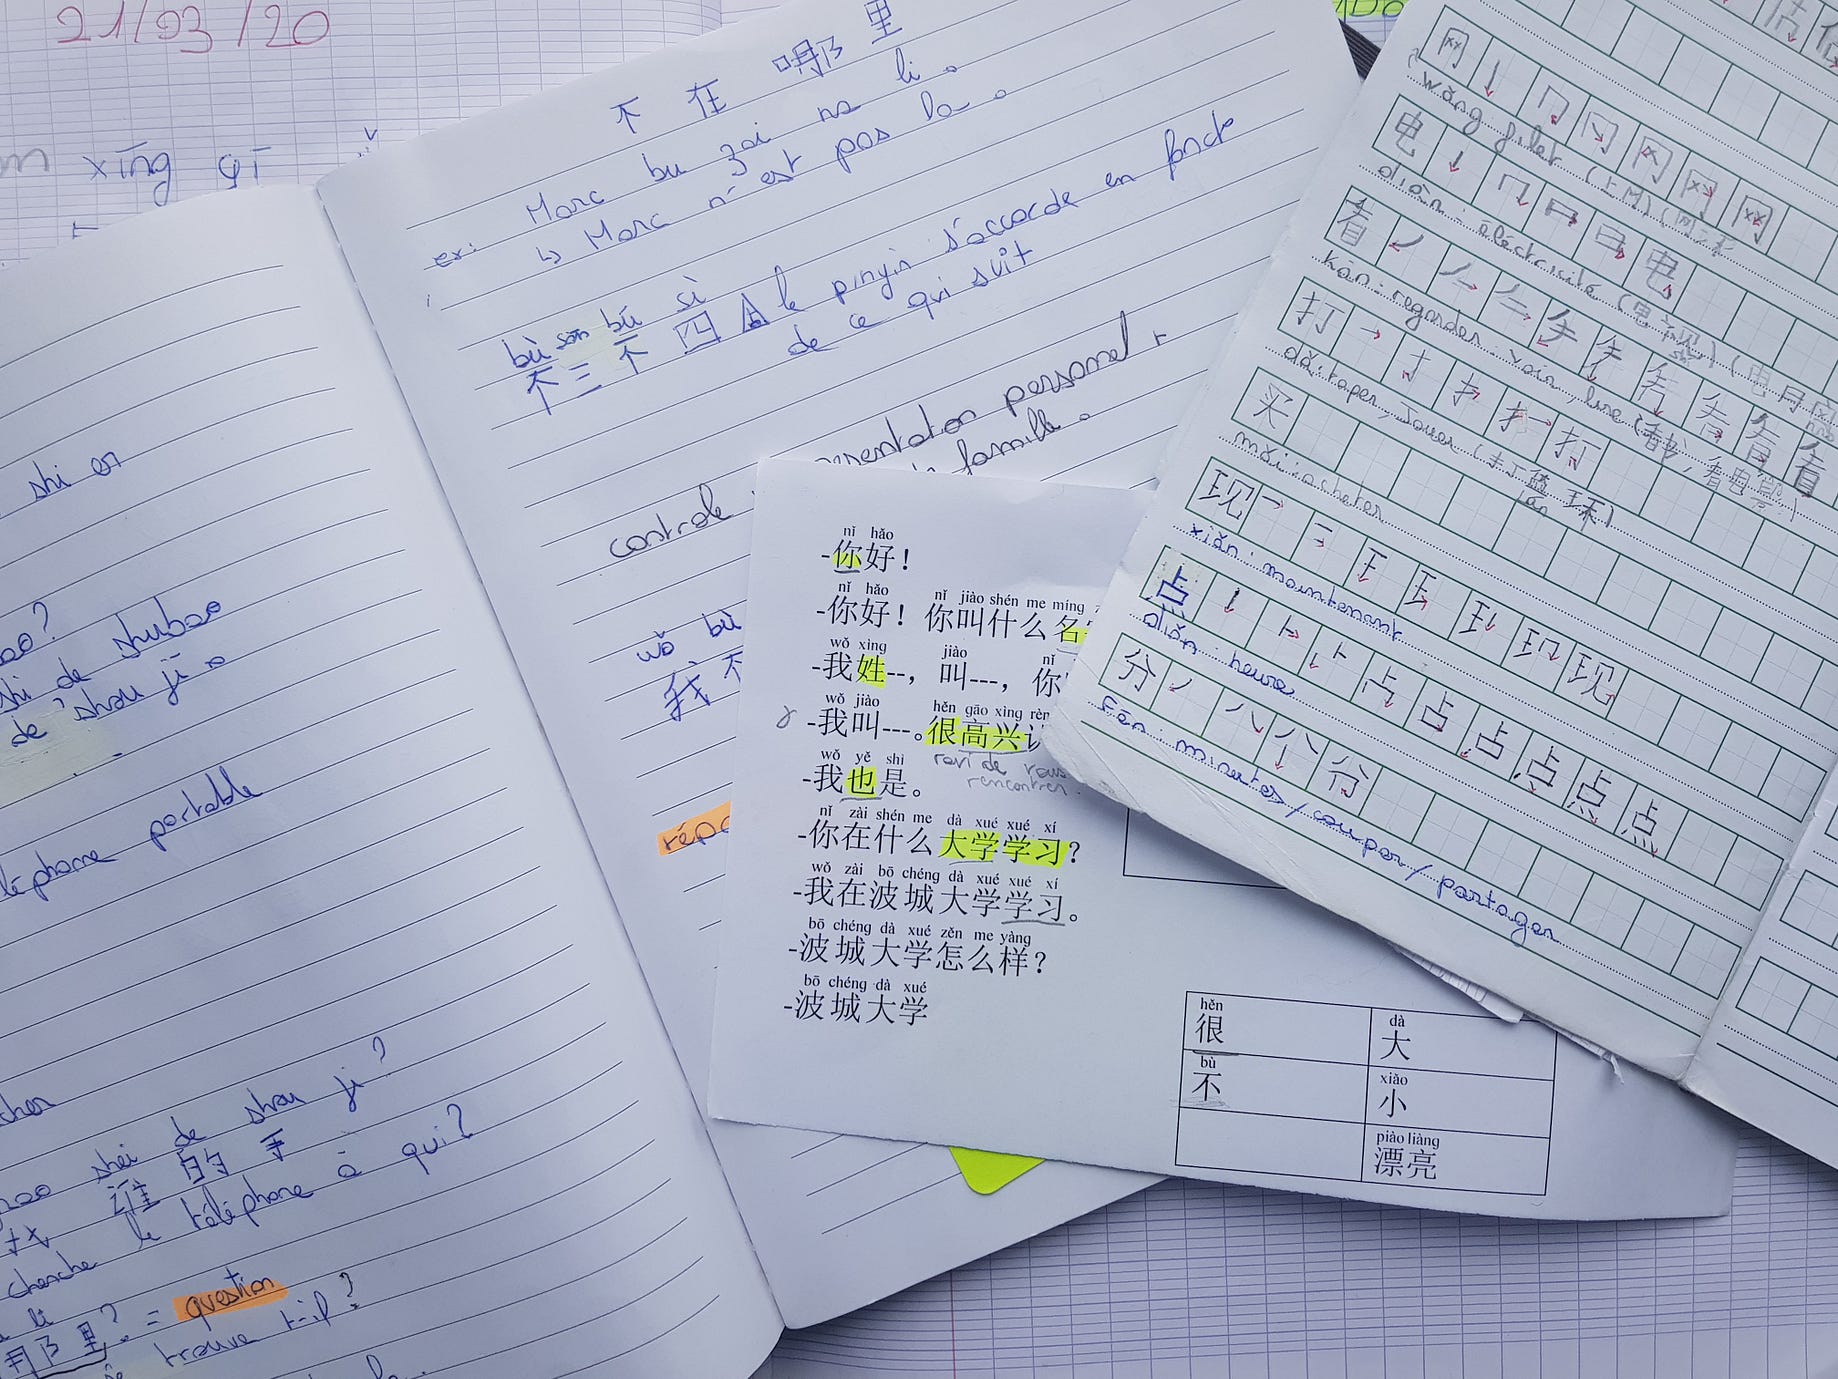 21/03/20
xīng qī
shi er
shi de shubao
de shou ji
portable
shéi de shou ji?
谁 的 手
找
cherche le téléphone à qui?
那里? = question
trouve t-il?
不 在 哪 里
ex: Marc bu zai na li.
↳ Marc n'est pas la.
bù sān bú sì
不 三 不 四 le pinyin s'accorde en fonct°
de ce qui suit
controle
personnel +
famille.
wǒ bù
我 不
nǐ hǎo
-你好！
nǐ hǎo nǐ jiào shén me míng
-你好！你叫什么名
wǒ xìng jiào nǐ
-我姓--，叫---，你
wǒ jiào hěn gāo xìng rèn
-我叫---。很高兴认
ravi de vous
rencontrer.
wǒ yě shì
-我也是。
nǐ zài shén me dà xué xué xí
-你在什么大学学习？
wǒ zài bō chéng dà xué xué xí
-我在波城大学学习。
bō chéng dà xué zěn me yàng
-波城大学怎么样？
bō chéng dà xué
-波城大学
hěn dà
很 大
bù xiǎo
不 小
piào liàng
漂亮
网
wǎng filet (上网)
电
diàn : éléctricité (电视)
看
kàn : regarder, voir, lire (看书, 看电
打
dǎ : taper, jouer (打篮球)
lán
买
mǎi : acheter
现
xiàn : maintenant
点
diǎn : heure
分
fēn : minutes / couper / partager